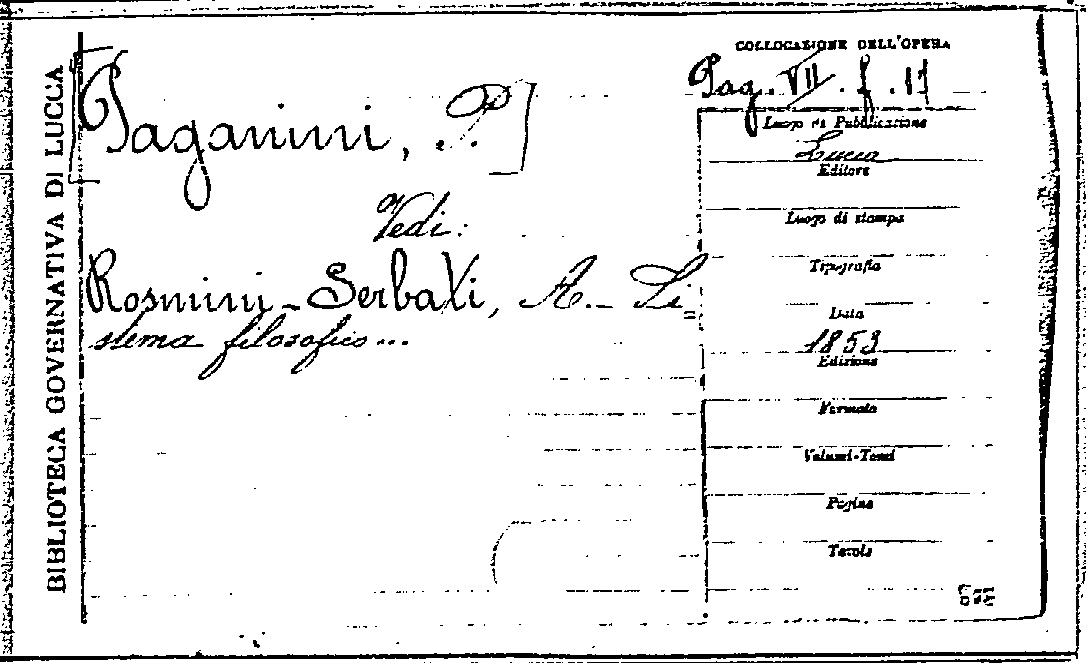 BIBLIOTECA GOVERNATIVA DI LUCCA
[Paganini, P.]
Vedi:
Rosmini-Serbati, A. - Si=
stema filosofico...
COLLOCAZIONE DELL'OPERA
Pag. VII. f. 11
Luogo di Pubblicazione
Lucca
Editore
Luogo di stampa
Tipografia
Data
1853
Edizione
Formato
Volumi-Tomi
Pagine
Tavole